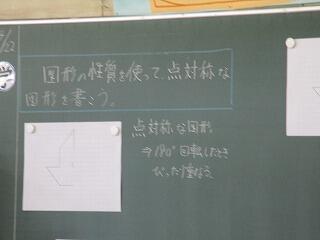 /22
図形の性質を使って、点対称な
図形を書こう。
点対称な図形
⇒180°回転したとき
ぴった重なる